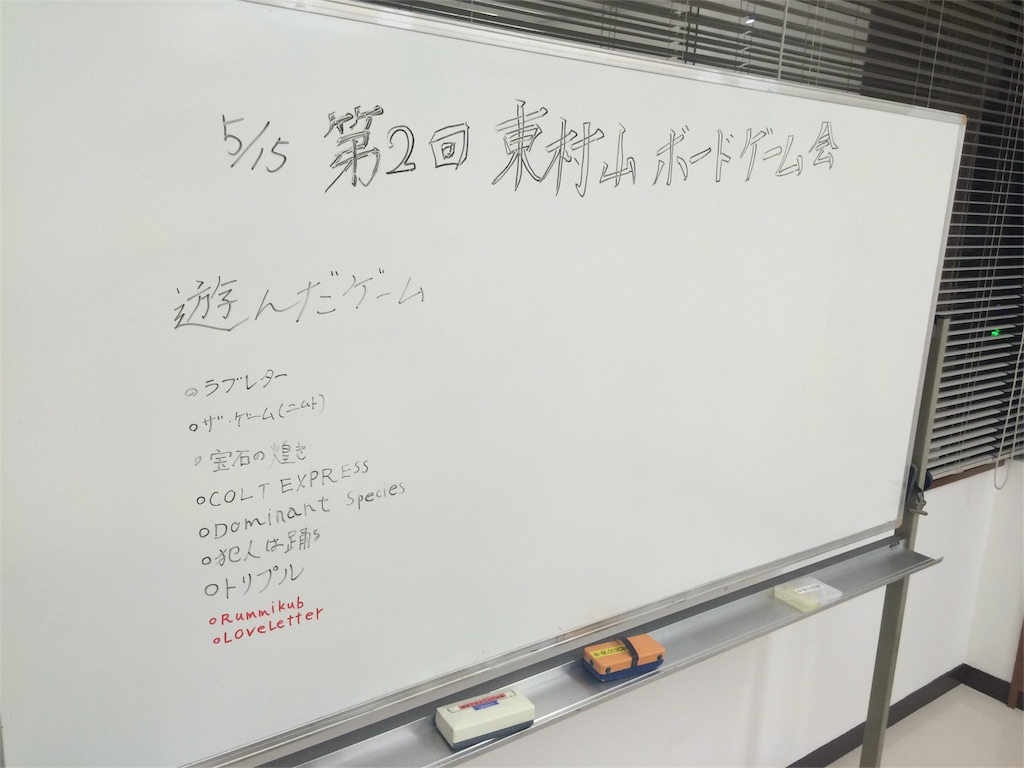 5/15 第2回 東村山ボードゲーム会
遊んだゲーム
○ラブレター
○ザ・ゲーム(ニムト)
○宝石の煌き
○COLT EXPRESS
○Dominant Species
○犯人は踊る
○トリプル
○Rummikub
○LOVELetter